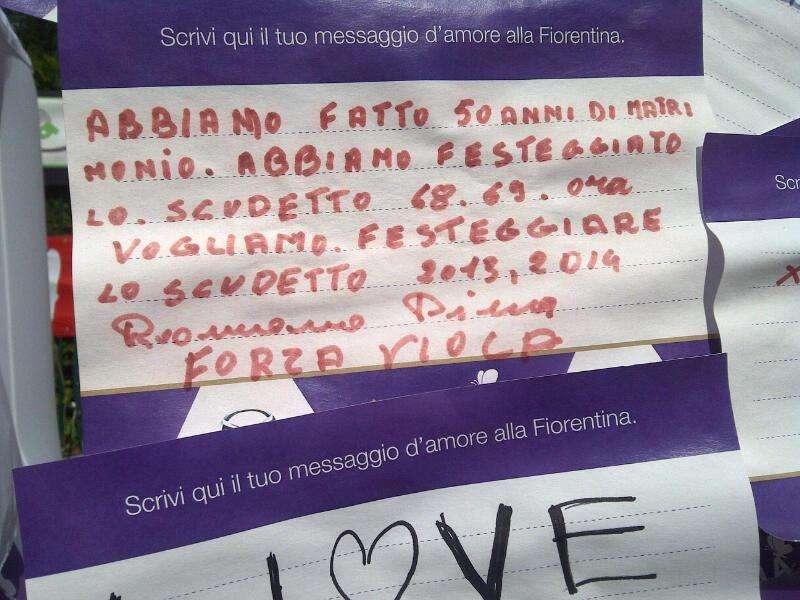 Scrivi qui il tuo messaggio d'amore alla Fiorentina.
ABBIAMO FATTO 50 ANNI DI MATRI
MONIO. ABBIAMO FESTEGGIATO
LO. SCUDETTO 68.69. ora
VOGLIAMO. FESTEGGIARE
LO SCUDETTO 2013, 2014
Romano Dina
FORZA VIOLA
Scr
Scrivi qui il tuo messaggio d'amore alla Fiorentina.
I ♡ VE